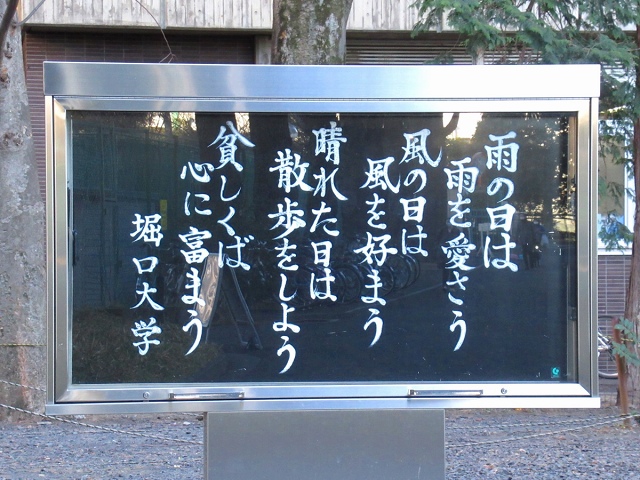 雨の日は
雨を愛さう
風の日は
風を好まう
晴れた日は
散歩をしよう
貧しくば
心に富まう
堀口大学